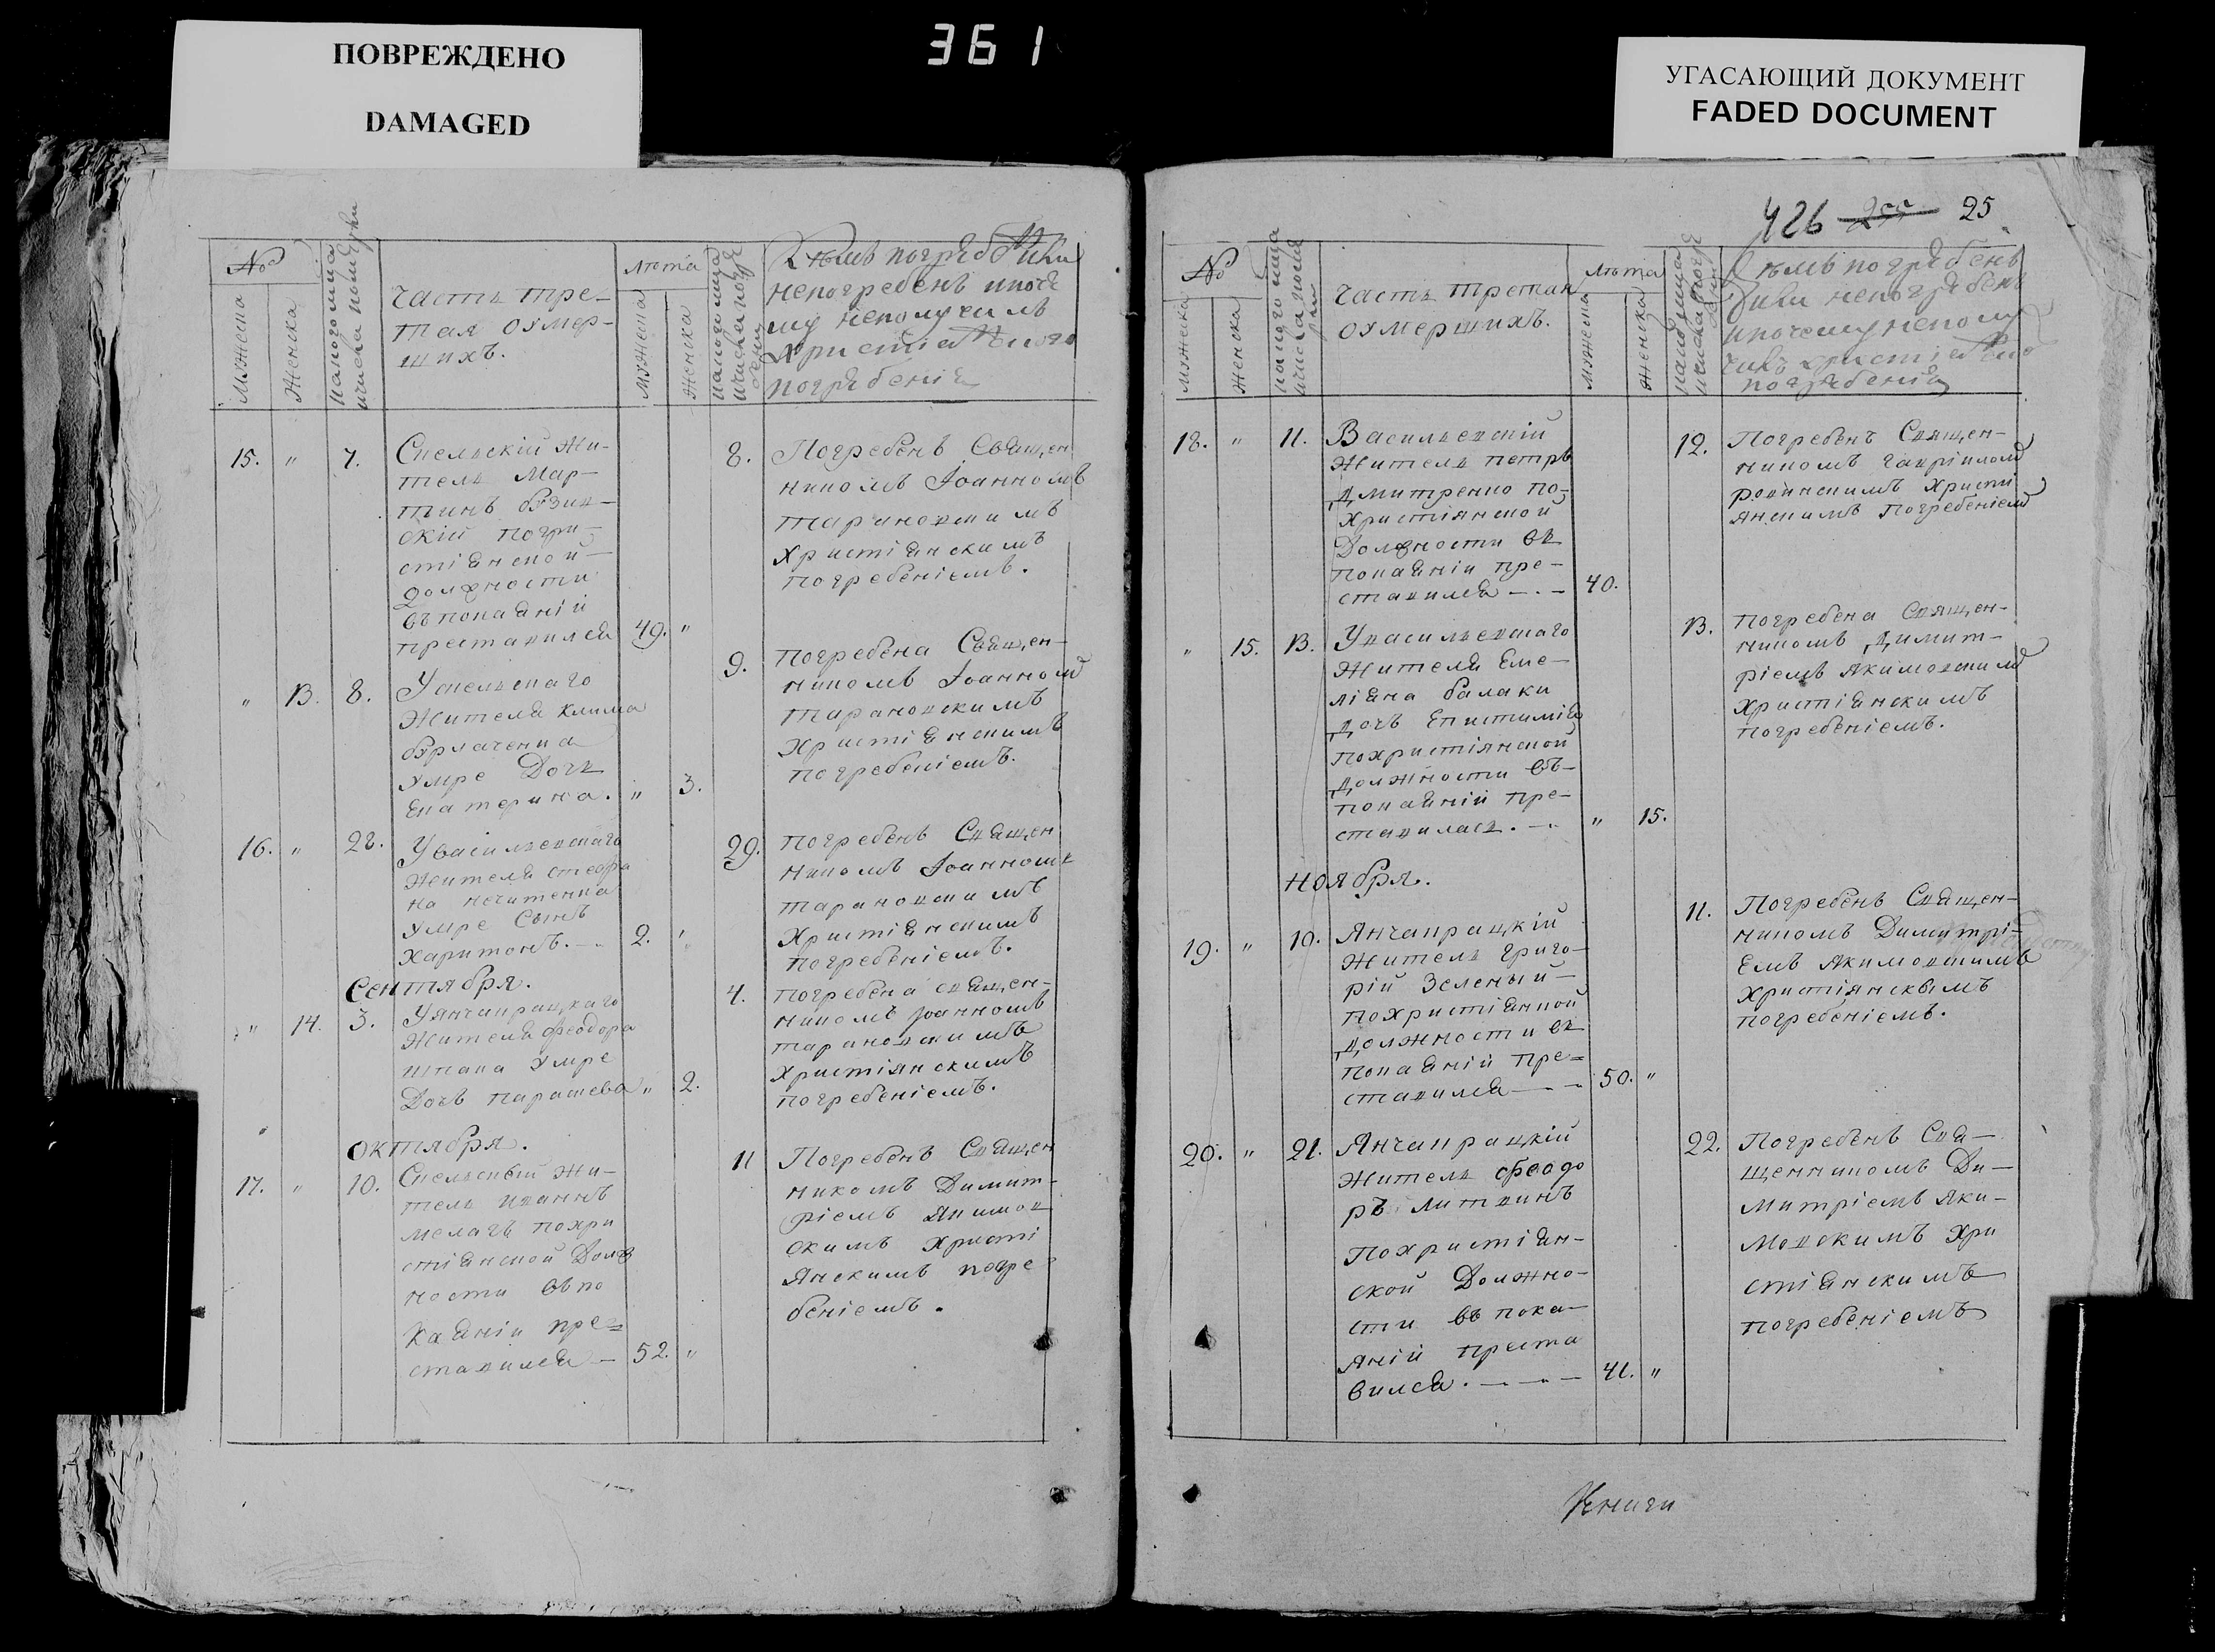 ПОВРЕЖДЕНО
DAMAGED
361
УГАСАЮЩИЙ ДОКУМЕНТ
FADED DOCUMENT
426 25
№
Мужеска
Женска
часть тре-
тая оумер-
шихъ.
лѣта
Мужеска
Женска
Кѣмъ погребенъ или
непогребенъ ипоче
му неполучилъ
христианского
погребенія
15. " 7.
жи-
тель Мар-
тинъ
ский похри-
стіанской
должности
въ покаяніи
преставился 49. "
8. Погребенъ Священ
никомъ Іоанномъ
тарановскимъ
Христіанскимъ
погребеніемъ.
" 13. 8.
Жителя клима
умре Дочь
Екатерина. " 3.
9. погребена Священ-
никомъ Іоанномъ
тарановскимъ
христіанскимъ
погребеніемъ.
16. " 28. Увасильевскаго
жителя стефа
на нечитенка
умре Сынъ
Харитонъ. 2. "
29. погребенъ Священ
никомъ Іоанномъ
тарановскимъ
Христіанскимъ
погребеніемъ.
Сентября.
" 14. 3. Уянчапрацкаго
Жителя феодора
шпака умре
Дочъ парасиева " 2.
4. погребена священ-
никомъ Іоанномъ
тарановскимъ
христіянскимъ
погребеніемъ.
октября.
17. " 10. жи-
тель иваннъ
похри
стіанской Долж
ности въ по
каяніи пре=
ставился 52. "
11 Погребенъ Священ
никомъ Димит-
ріемъ Якимов
скимъ Христі
Янскимъ погре
беніемъ.
№
Мужеска
Женска
часть третая
оумершихъ.
лѣта
Мужеска
Женска
Кѣмъ погребенъ
или непогребенъ
ипочему неполу
чилъ христіанско
погребенія
18. " 11. Васильевскій
житель петръ
Дмитренко по-
христіянской
Должности въ
покаяніи пре-
ставился 40.
12. Погребенъ Священ-
никомъ гавріиломъ
Христи
янскимъ Погребеніемъ
" 15. 13. Увасильевскаго
жителя Еме-
ліана балаки
Дочъ Епистимія
похристіянской
должности въ-
покаяніи пре-
ставилась. " 15.
13. погребена Священ-
никомъ Димит-
ріемъ Якимовскимъ
христіанскимъ
погребеніемъ.
ноября.
19. " 10. Янчапрацкій
житель григо-
рій Зеленый-
похристіанной
должности въ
покаяніи пре=
ставился 50. "
11. Погребенъ Священ-
никомъ Димитрі-
Емъ Якимовскимъ
христіянскимъ
погребеніемъ.
20. " 21. Янчапрацкій
житель феодо
ръ литвинъ
Похристіан-
ской Должно-
сти въ пока-
яній преста
вился. 41. "
22. Погребенъ Свя-
щенникомъ Ди-
митріемъ Яки-
мовскимъ Хри
стіанскимъ
погребеніемъ
Книги